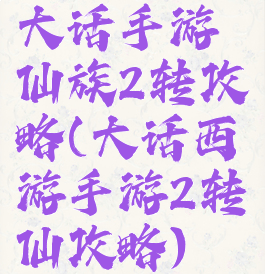 大话手游
仙族2转攻
略(大话西
游手游2转
仙攻略)